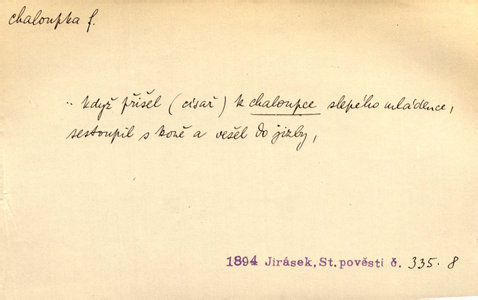 chaloupka f.
.. když přišel (císař) k chaloupce slepého mládence,
sestoupil s koně a vešel do jizby,
1894 Jirásek, St. pověsti č. 335. 8